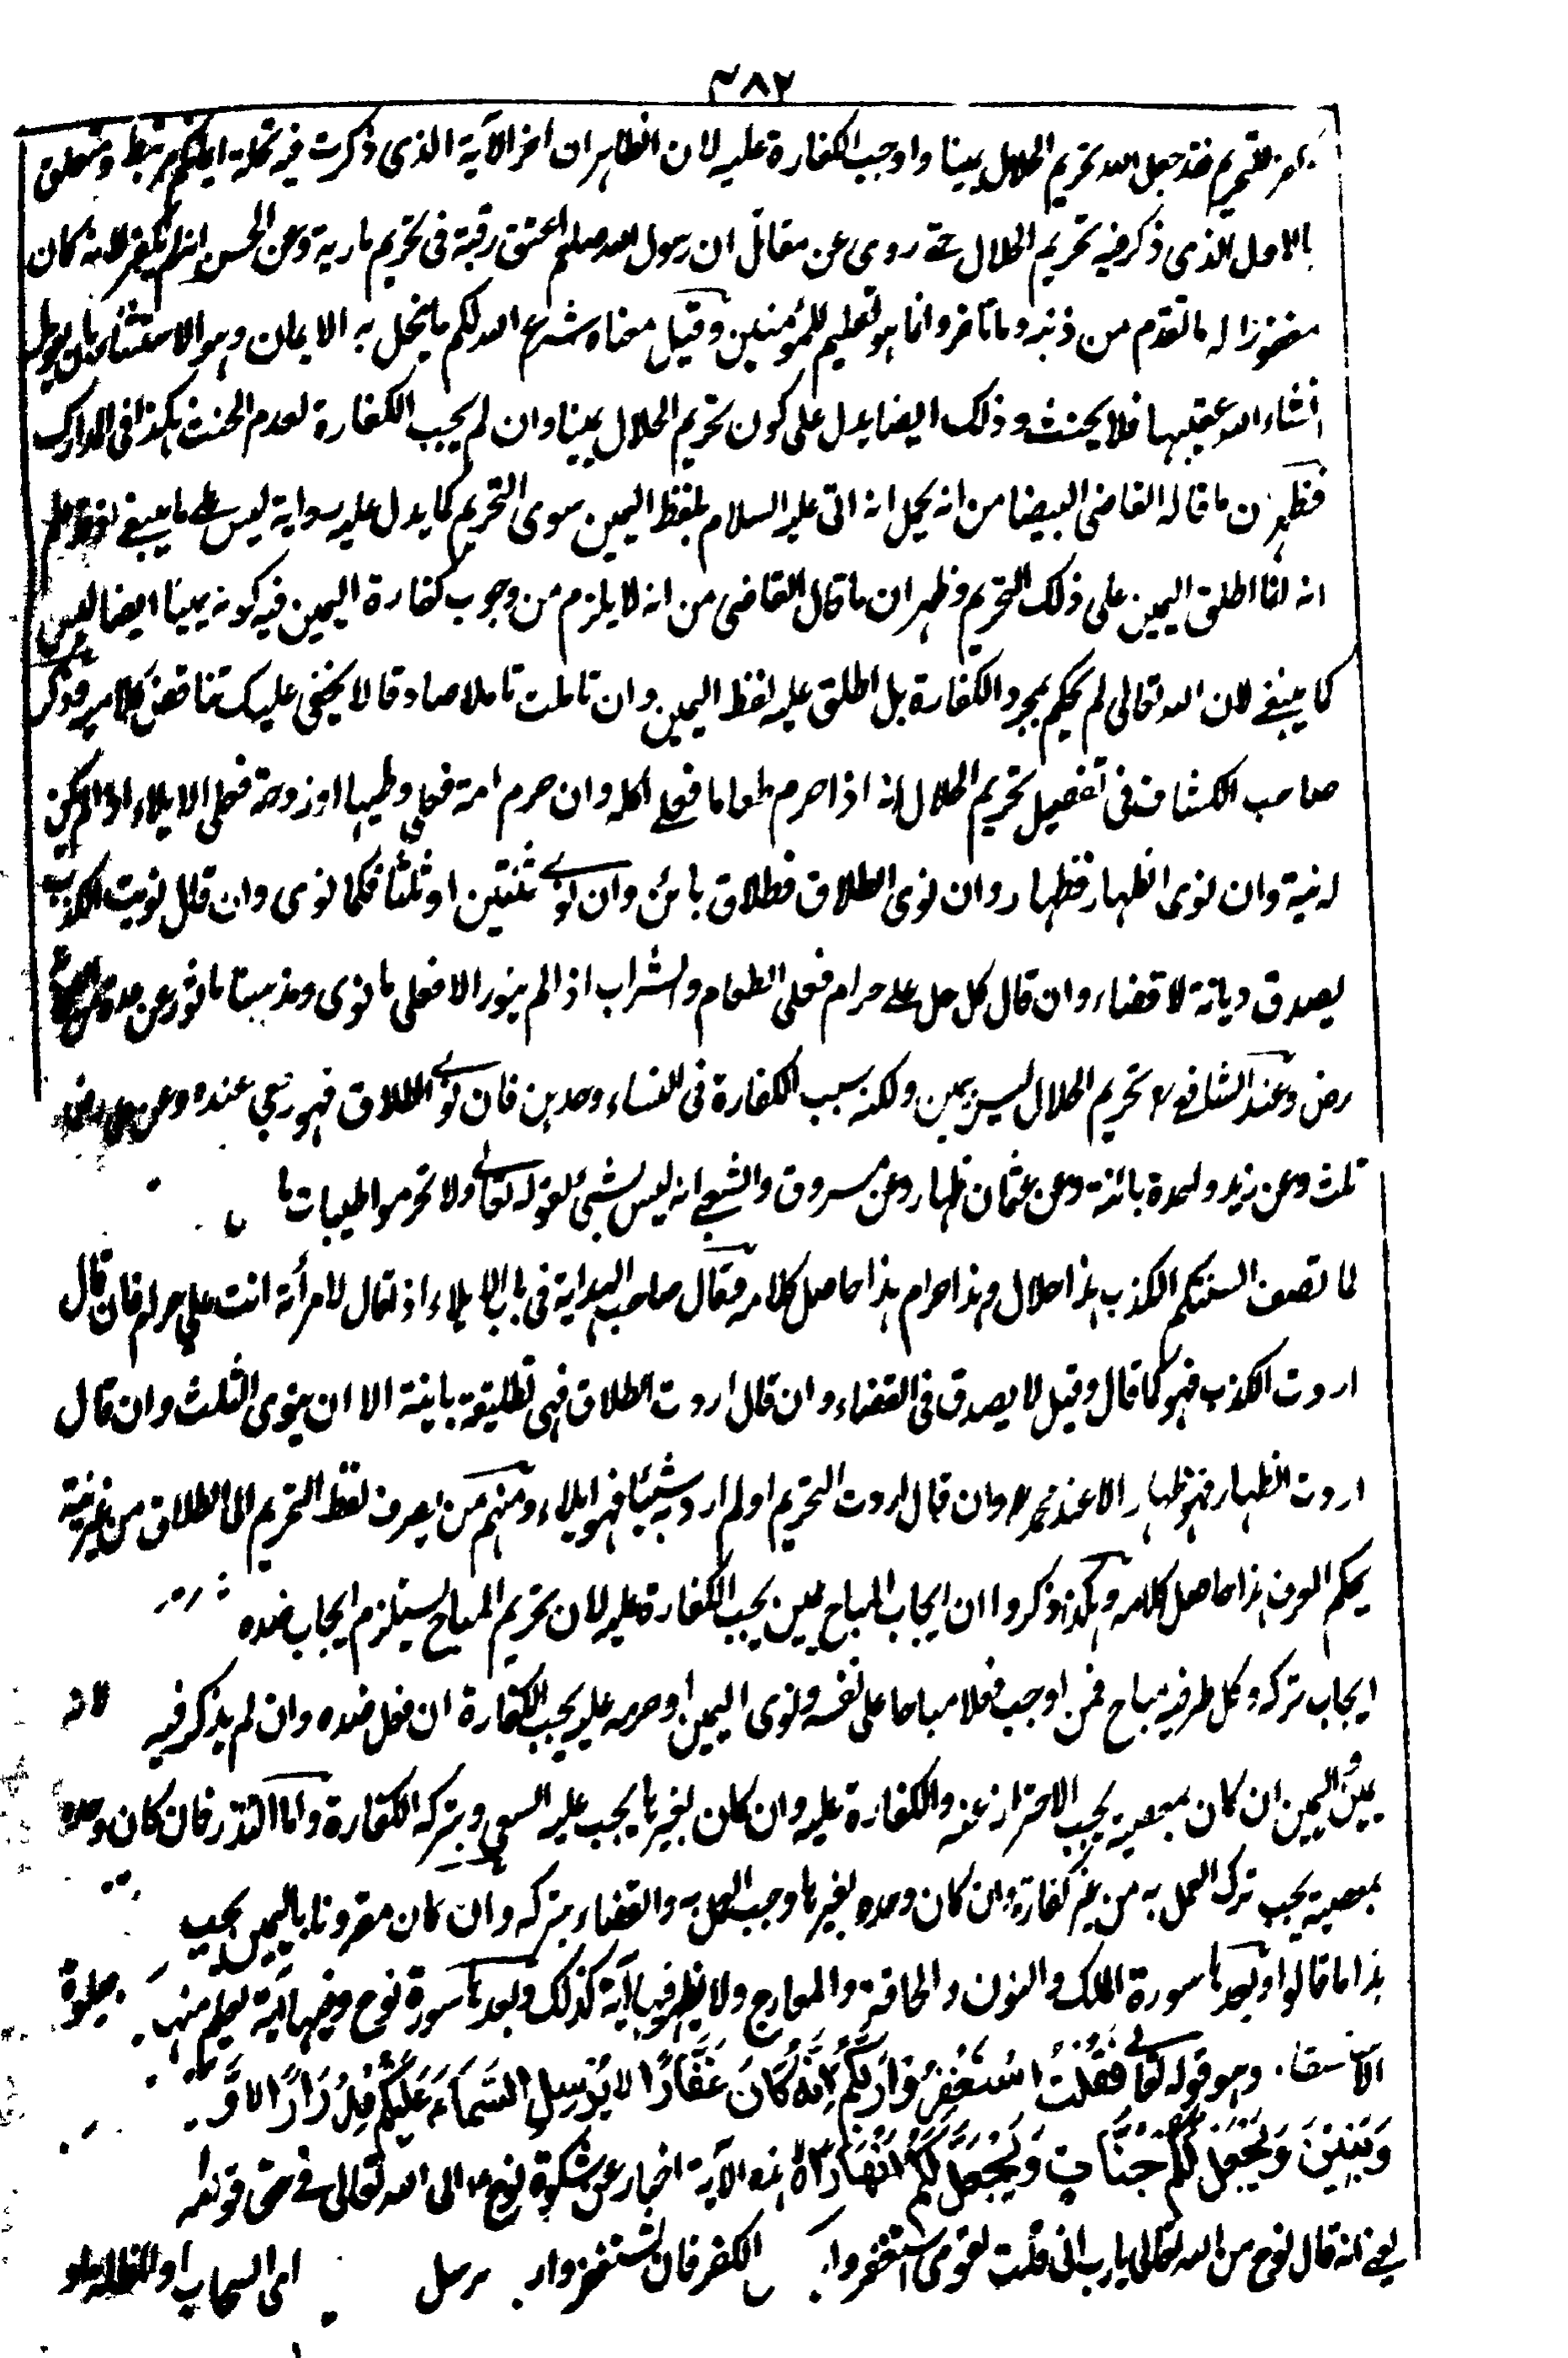 ٣٨٢
التحريم فقد جعل الله تحريم الحلال يمينا واوجب الكفارة عليه لان الظاهر ان اخر الآية الذى ذكرت فيه تحلة ايمانكم مرتبط ومتعلق
بالاول الذى ذكر فيه تحريم الحلال حتے روى عن مقاتل ان رسول الله صلعم اعتق رقبة فى تحريم مارية وعن الحسن انه لم يكفر لانه كان
مغفورا له ما تقدم من ذنبه وما تاخر وانما هو تعليم للمؤمنين وقيل معناه شرع الله لكم ما يحل به الايمان وهو الاستثناء بان يقول
انشاء الله عقيبها فلا يحنث وذلك ايضا يدل على كون تحريم الحلال يمينا وان لم يجب الكفارة لعدم الحنث هكذا فى المدارك
فظهر ن ما قاله القاضى البيضا من انه يحمل انه اتى عليه السلام بلفظ اليمين سوى التحريم كما يدل عليه رواية ليس علے ما ينبغے
انه لما اطلق اليمين على ذلك التحريم وظهر ان ما قال القاضى من انه لا يلزم من وجوب كفارة اليمين فيه كونه يمينا ايضا ليس
كما ينبغے لان الله تعالى لم يحكم بمجرد الكفارة بل اطلق عليه لفظ اليمين وان تاملت تاملا صادقا لا يخفى عليك تناقض كلاميه وذكر
صاحب الكشاف فى تفصيل تحريم الحلال انه اذا حرم طعاما فعلے اكله وان حرم امة فعلى وطيها او زوجة فعلى الايلاء اذا لم يكن
له نية وان نوى الظهار فظهار وان نوى الطلاق فطلاق بائن وان نوے ثنتين او ثلثا فكما نوى وان قال نويت الكذب
يصدق ديانة لا قضاء وان قال كل حل علے حرام فعلى الطعام والشراب اذا لم ينو والا فعلى ما نوى ومذهبنا ماثور عن
رض وعند الشافعى رح تحريم الحلال ليس بيمين ولكنه سبب الكفارة فى النساء وحدهن فان نوے الطلاق فهو رجعى عنده وعن على رض
ثلث وعن زيد واحدة بائنة وعن عثمان ظهار وعن مسروق والشعبے انه ليس بشئ لقوله تعالے ولا تحرموا طيبات ما
لما تصف السنتكم الكذب هذا حلال وهذا حرام هذا حاصل كلامه وقال صاحب الهداية فى باب الايلاء اذا قال لامرأته انت على حرام فان قال
اردت الكذب فهو كما قال وقيل لا يصدق فى القضاء وان قال اردت الطلاق فهى تطليقة باينة الا ان ينوى الثلث وان قال
اردت الظهار فهو ظهار الا عند محمد رح وان قال اردت التحريم او لم ارد به شيئا فهو ايلاء ومنهم من يصرف لفظ التحريم الى الطلاق من غير نية
بحكم العرف هذا حاصل كلامه وهكذا ذكروا ان ايجاب المباح يمين يجب الكفارة عليه لان تحريم المباح يستلزم ايجاب ضده
ايجاب تركه وكل طرفيه مباح فمن اوجب فعلا مباحا على نفسه ونوى اليمين او حرمه عليه يجب الكفارة ان فعل ضده وان لم يذكر فيه
يمين اليمين ان كان بمعصية يجب الاحتراز عنه والكفارة عليه وان كان بغيرها يجب عليه السعى وبتركه الكفارة واما النذر فان كان وحده
بمعصية يجب ترك العمل به من غير كفارة وان كان وحده بغيرها وجب العمل به والقضاء بتركه وان كان مقرونا باليمين يجب
هذا ما قالوا وبعدها سورة الملك والنون والحاقة والمعارج ولا يظهر فيها آية كذلك وبعدها سورة نوح وفيها آية يعلم منها صلوة
الاستسقاء وهو قوله تعالے فَقُلْتُ اسْتَغْفِرُوْا رَبَّكُمْ اِنَّهُ كَانَ غَفَّارًا لا يُّرْسِلِ السَّمَآءَ عَلَيْكُمْ مِّدْرَارًا لا وَّ
وَبَنِيْنَ وَيَجْعَلْ لَّكُمْ جَنّٰاتٍ وَّيَجْعَلْ لَّكُمْ اَنْهَارًا هذه الآية اخبار عن شكوة نوح ع الى الله تعالى فے حق قومه
يعنے انه قال نوح من الله تعالى يا رب انى قلت لقومى استغفروا الكفر فان تستغفروا يرسل اى السحاب او المظلة